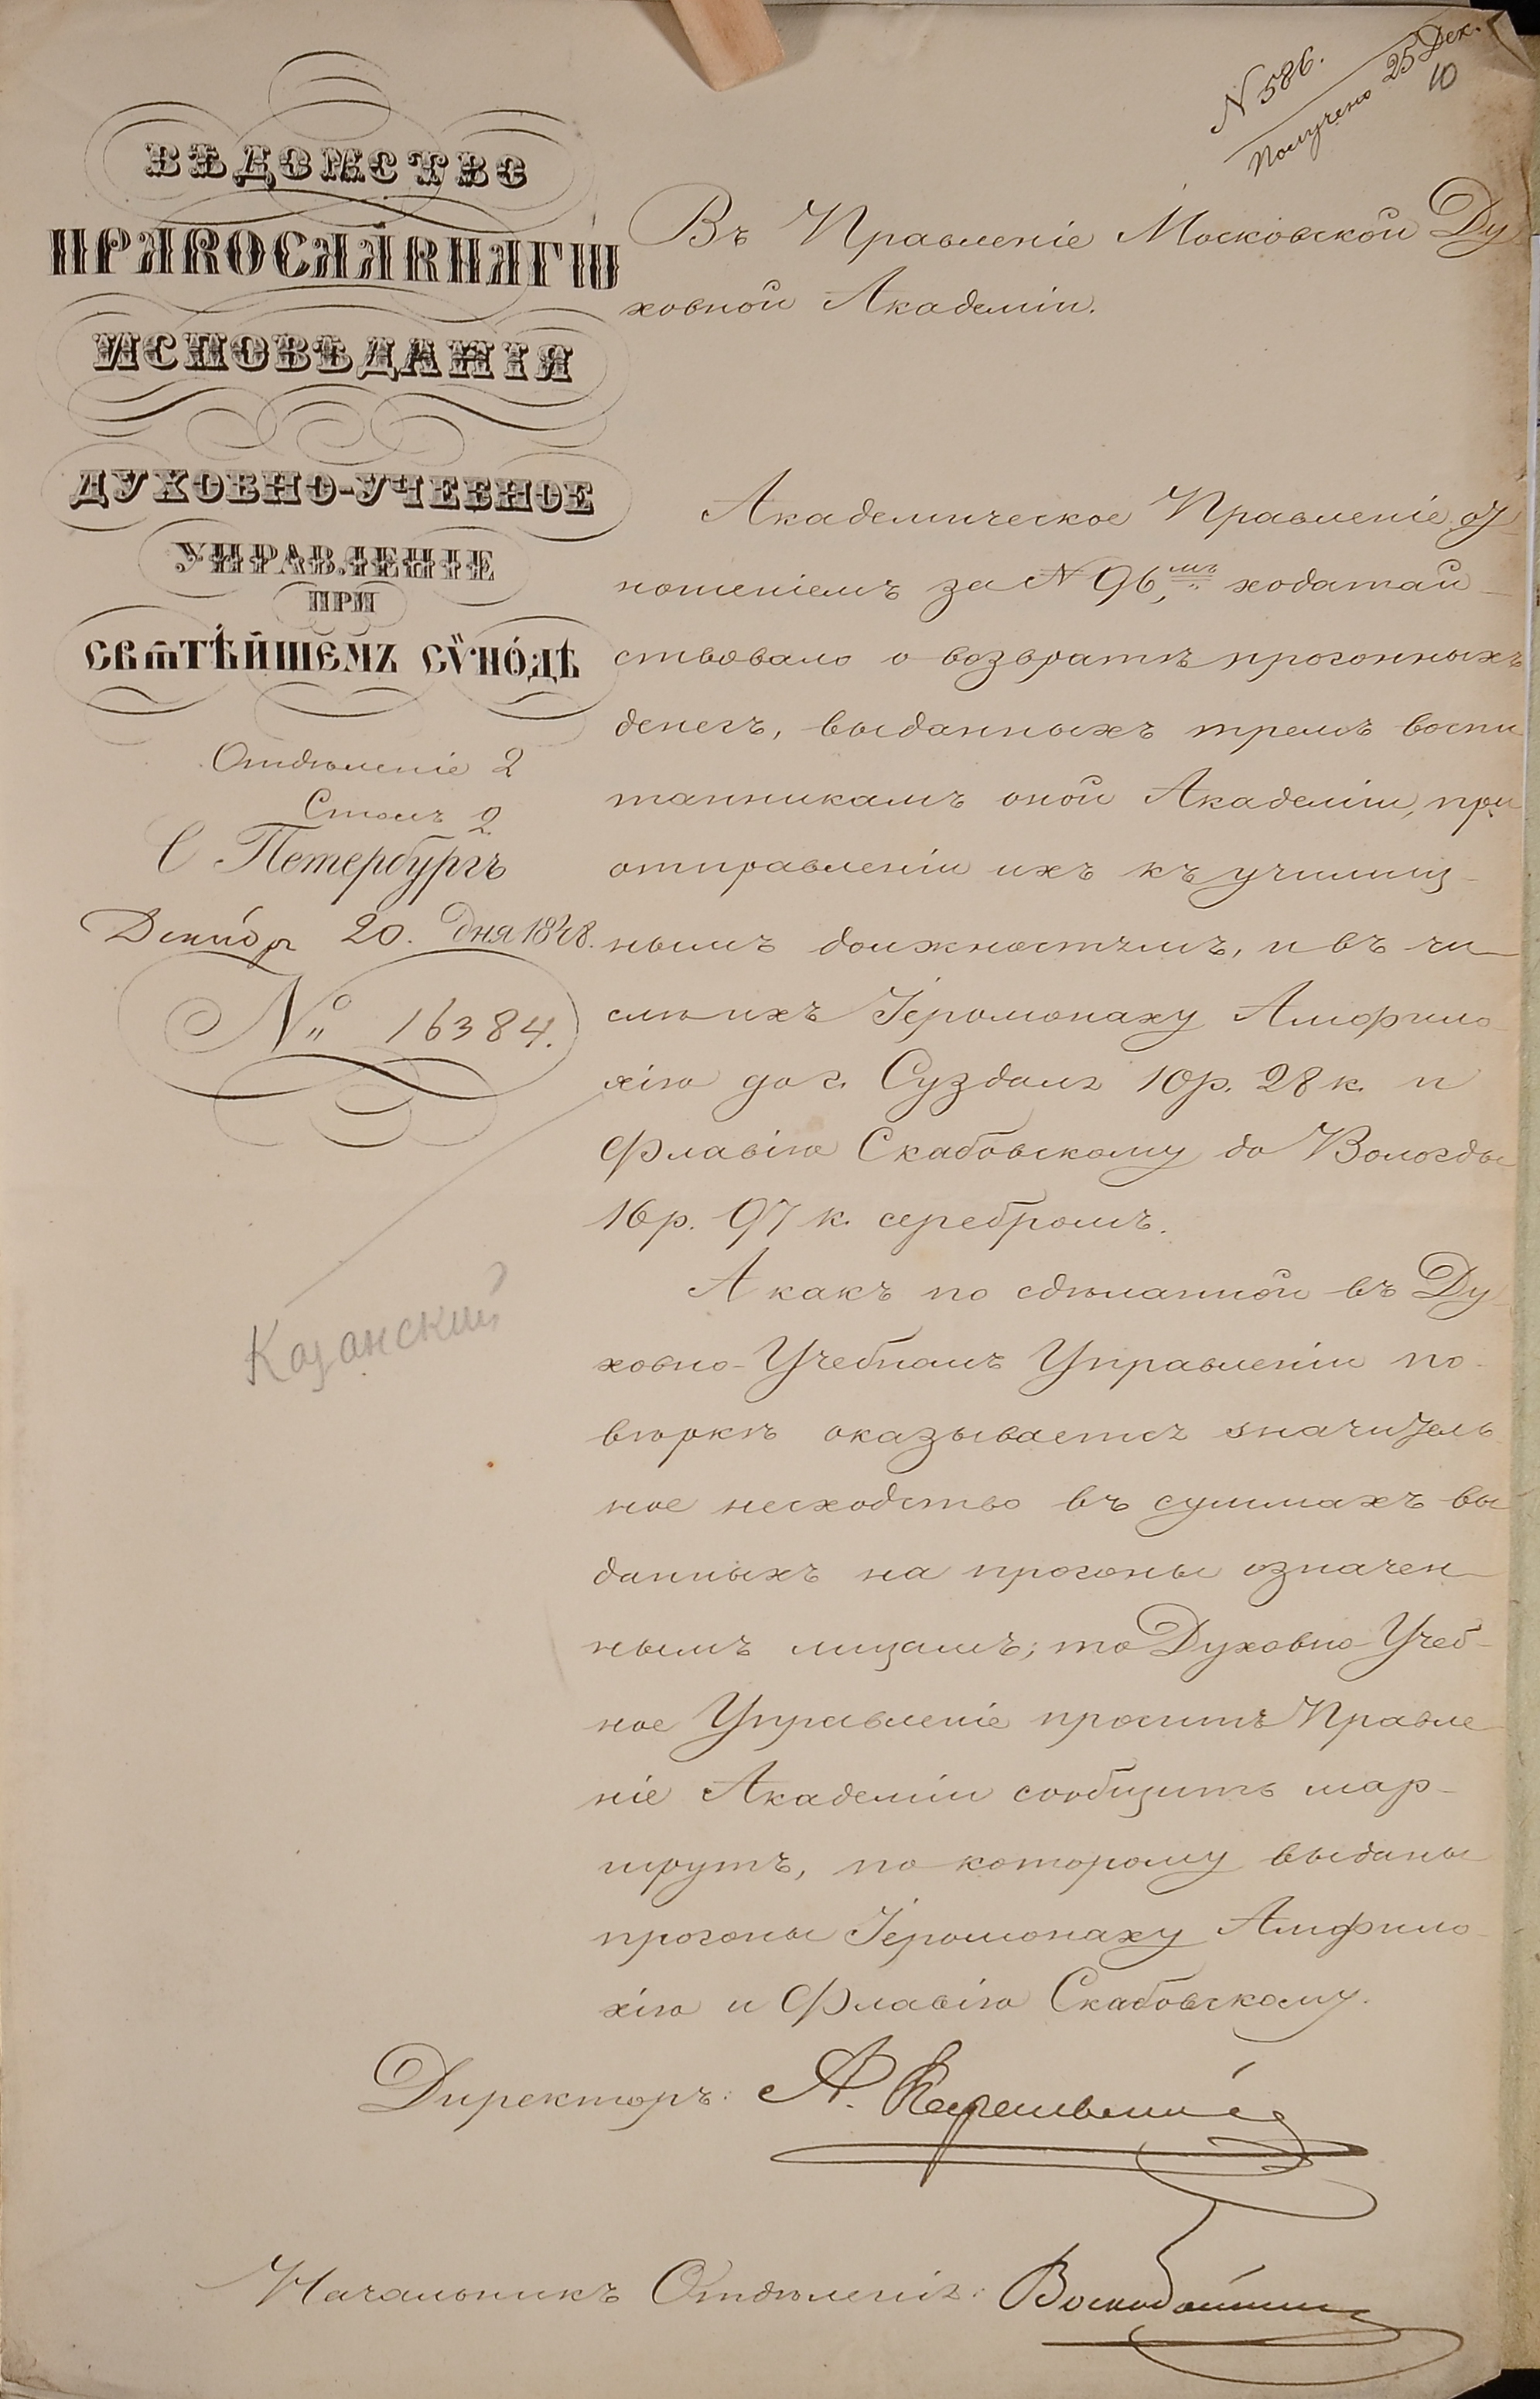 N 586.
Получено 25 Дек.
10
ВѢДОМСТВО
ПРАВОСЛАВНАГѠ
ИСПОВѢДАНІЯ
ДУХОВНО-УЧЕБНОЕ
УПРАВЛЕНІЕ
ПРИ
СВѦТѢЙШЕМЪ СѴНО́ДѢ
Отдѣленіе 2
Столъ 2
С Петербургъ
Декабр 20. дня 1848.
№ 16384.
Казанский
Въ Правленіе Московской Ду
ховной Академіи.
Академическое Правленіе от
ношеніемъ за N 96,мъ ходатай-
ствовало о возвратѣ прогонныхъ
денегъ, выданныхъ тремъ воспи
танникамъ оной Академіи, при
отправленіи ихъ къ училищ-
нымъ должностямъ, и въ чи-
слѣ ихъ Іеромонаху Амфило
хію до г. Суздаля 10 р. 28 к. и
Флавію Скабовскому до Вологды
16 р. 97 к. серебромъ.
А какъ по сдѣланной въ Ду-
ховно-Учебномъ Управленіи по-
вѣркѣ оказывается значитель
ное несходство въ суммахъ вы
данныхъ на прогоны означен-
нымъ лицамъ; то Духовно-Учеб-
ное Управленіе проситъ Правле
ніе Академіи сообщить мар-
шрутъ, по которому выданы
прогоны Іеромонаху Амфило
хію и Флавію Скабовскому.
Директоръ: А. Карасевскій
Начальникъ Отдѣленія: